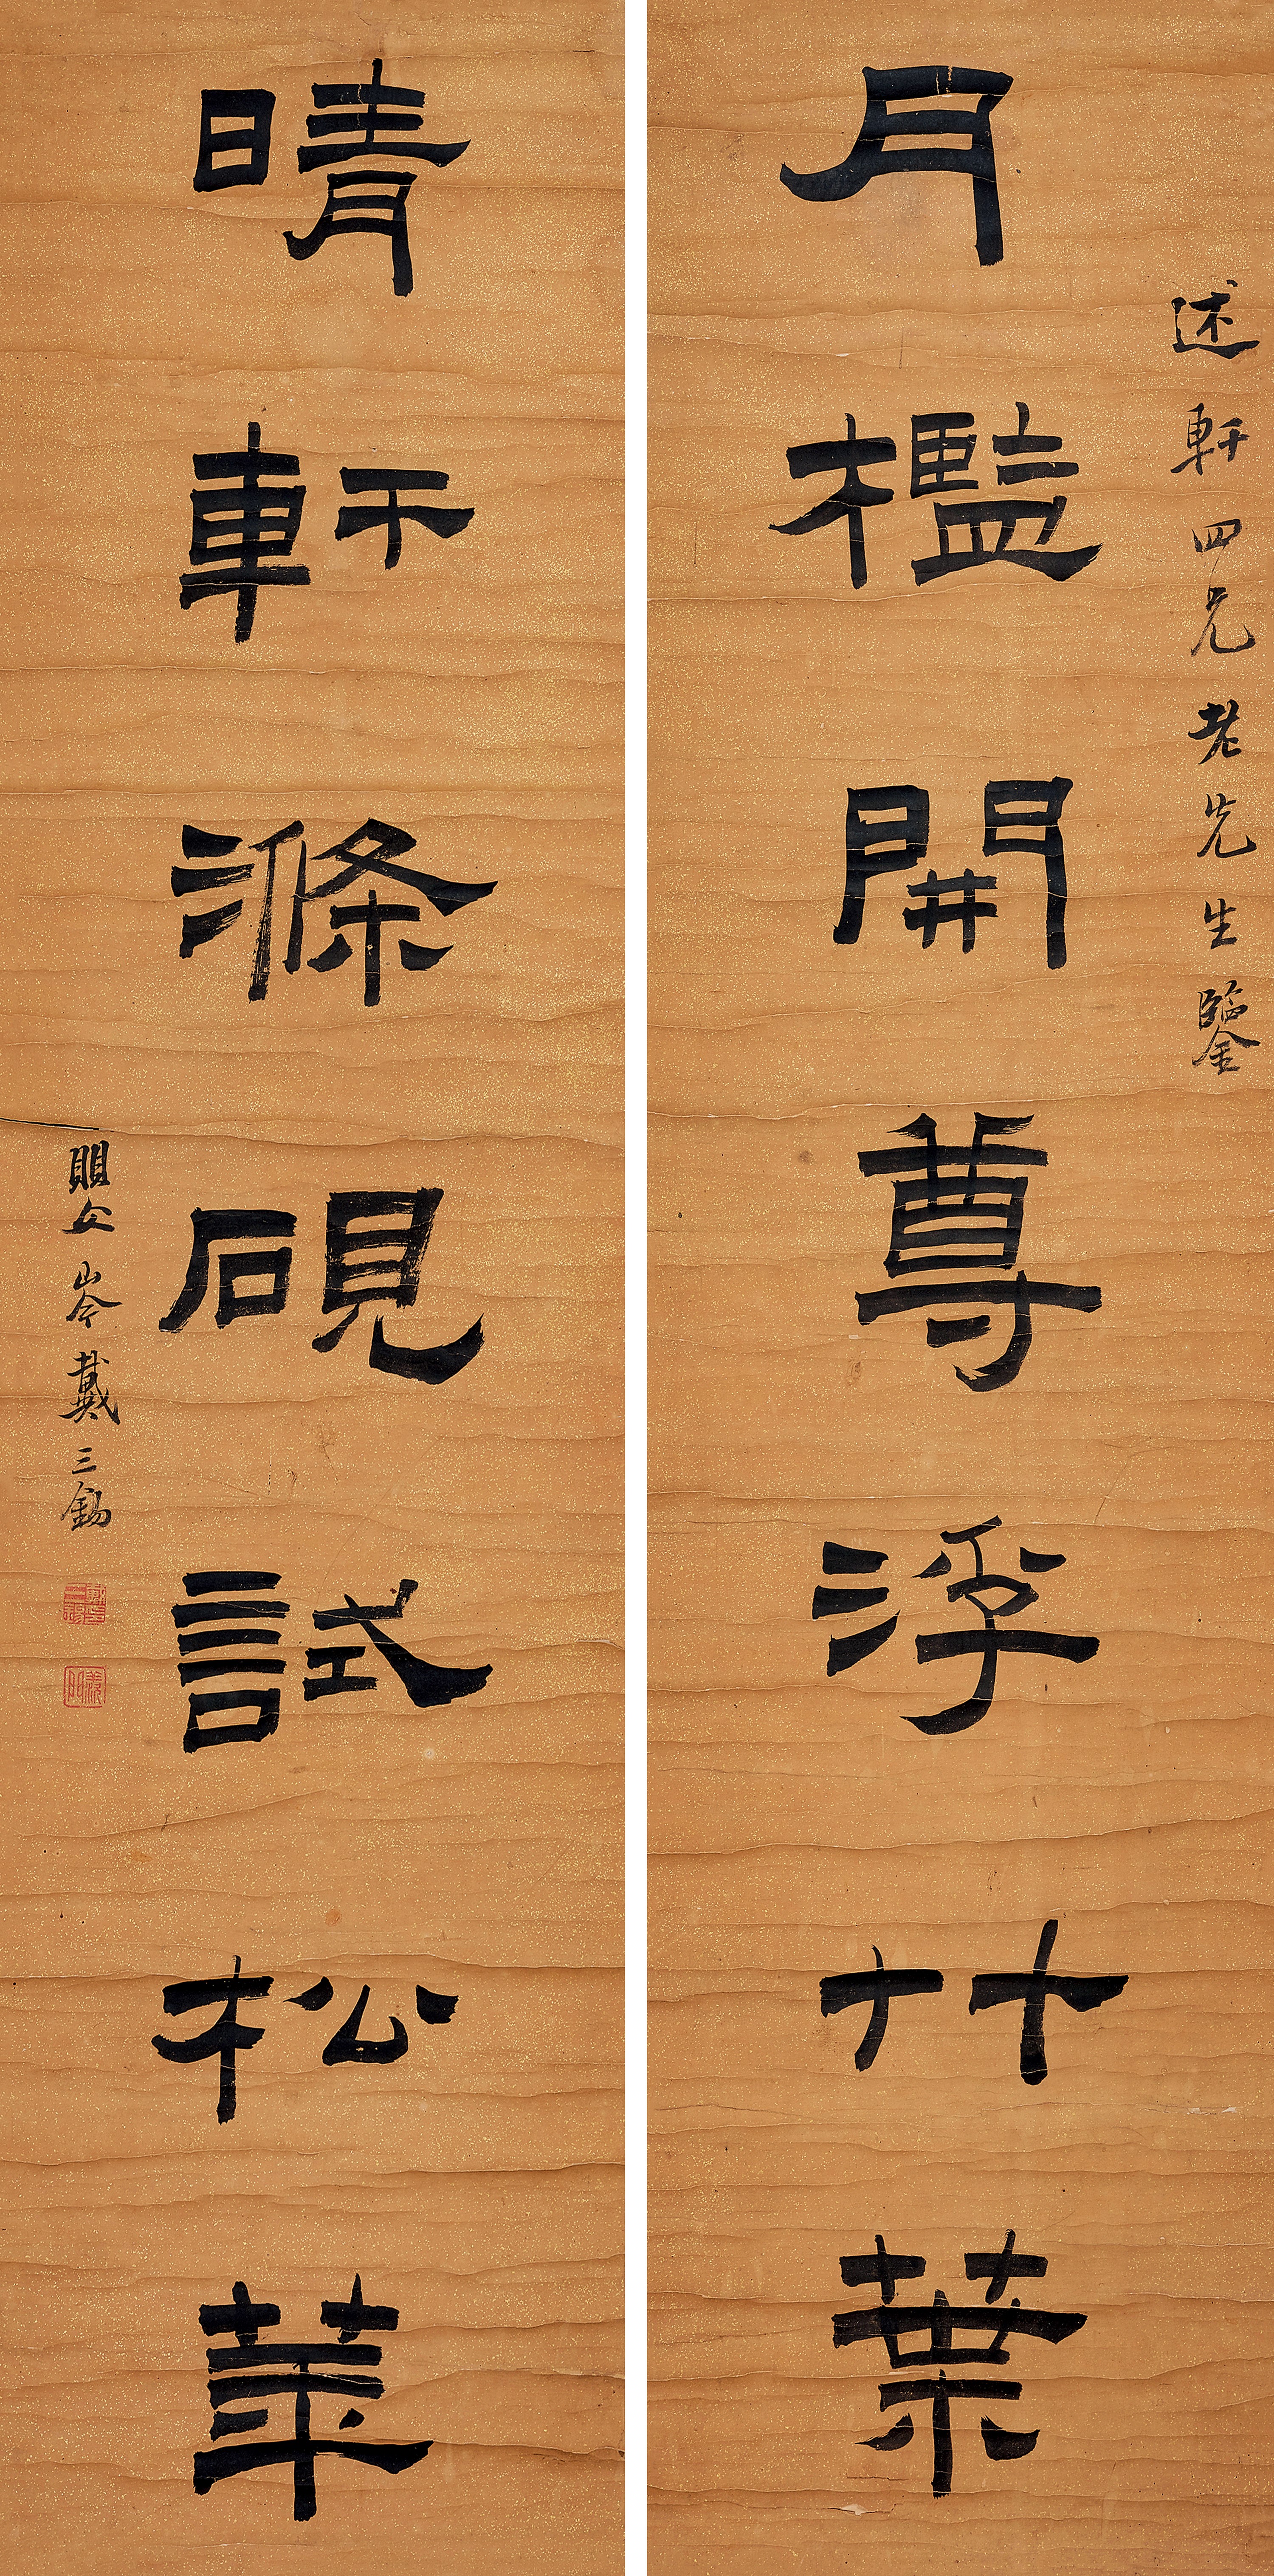 述軒四兄老先生鑒
月檻開尊浮竹葉
晴軒滌硯試松華
嬰岑戴三錫